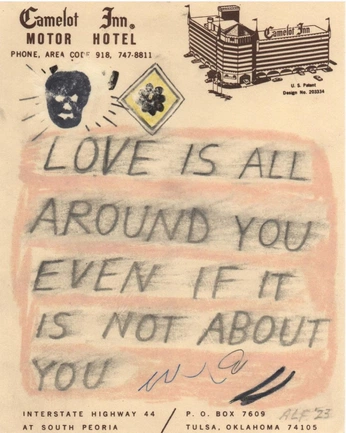 Camelot Inn®
MOTOR HOTEL
PHONE, AREA CODE 918, 747-8811
Camelot Inn
U. S. Patent
Design No. 203324
LOVE IS ALL
AROUND YOU
EVEN IF IT
IS NOT ABOUT
YOU
INTERSTATE HIGHWAY 44 / P. O. BOX 7609
AT SOUTH PEORIA / TULSA, OKLAHOMA 74105
ALF '23